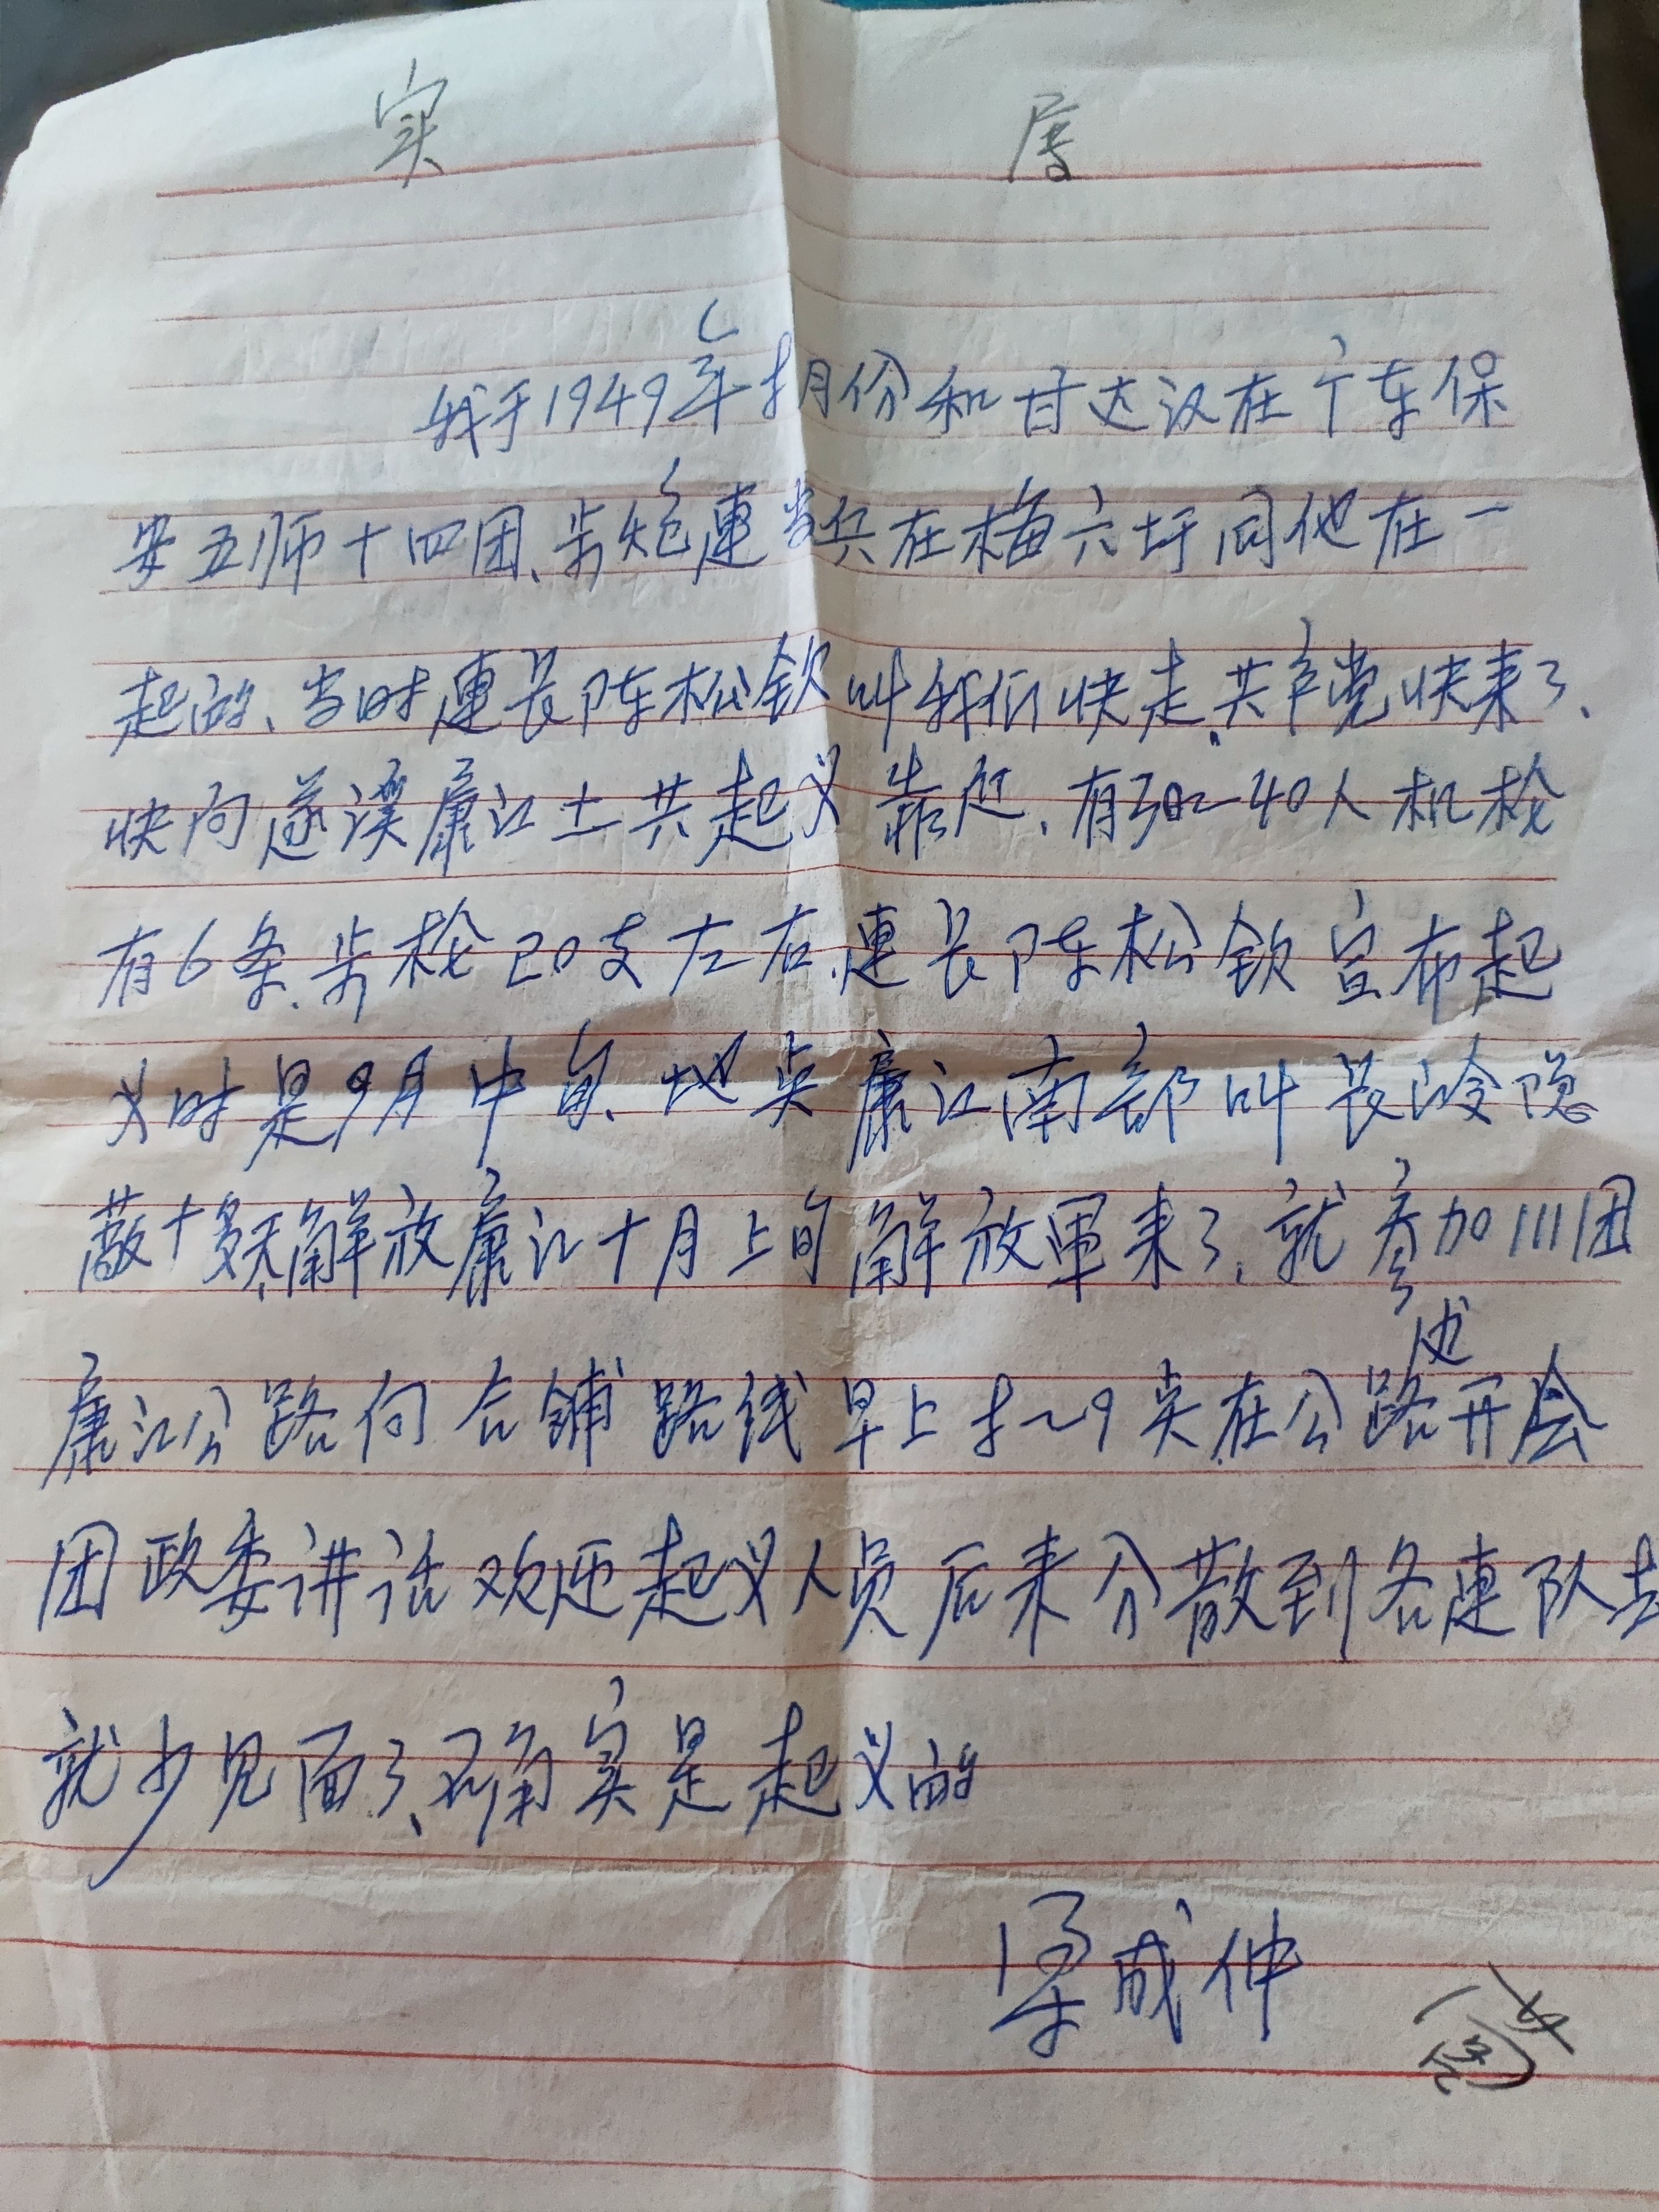 实 属
我于1949年8月份和甘达汉在广东保
安五师十四团、步炮連当兵在梅六圩同他在一
起的、当时連长陈松钦叫我们快走、共产党快来了、
快向遂溪廉江土共起义靠近、有30～40人机枪
有6条、步枪20支左右、連长陈松钦宣布起
义时是9月中旬、地点廉江南部叫长岭隐
蔽十多天、解放廉江十月上旬解放军来了、就参加111团
廉江公路向合铺路线早上8～9点在公路边开会
团政委讲话欢迎起义人员后来分散到各連队去
就少见面了、确实是起义的
梁成仲